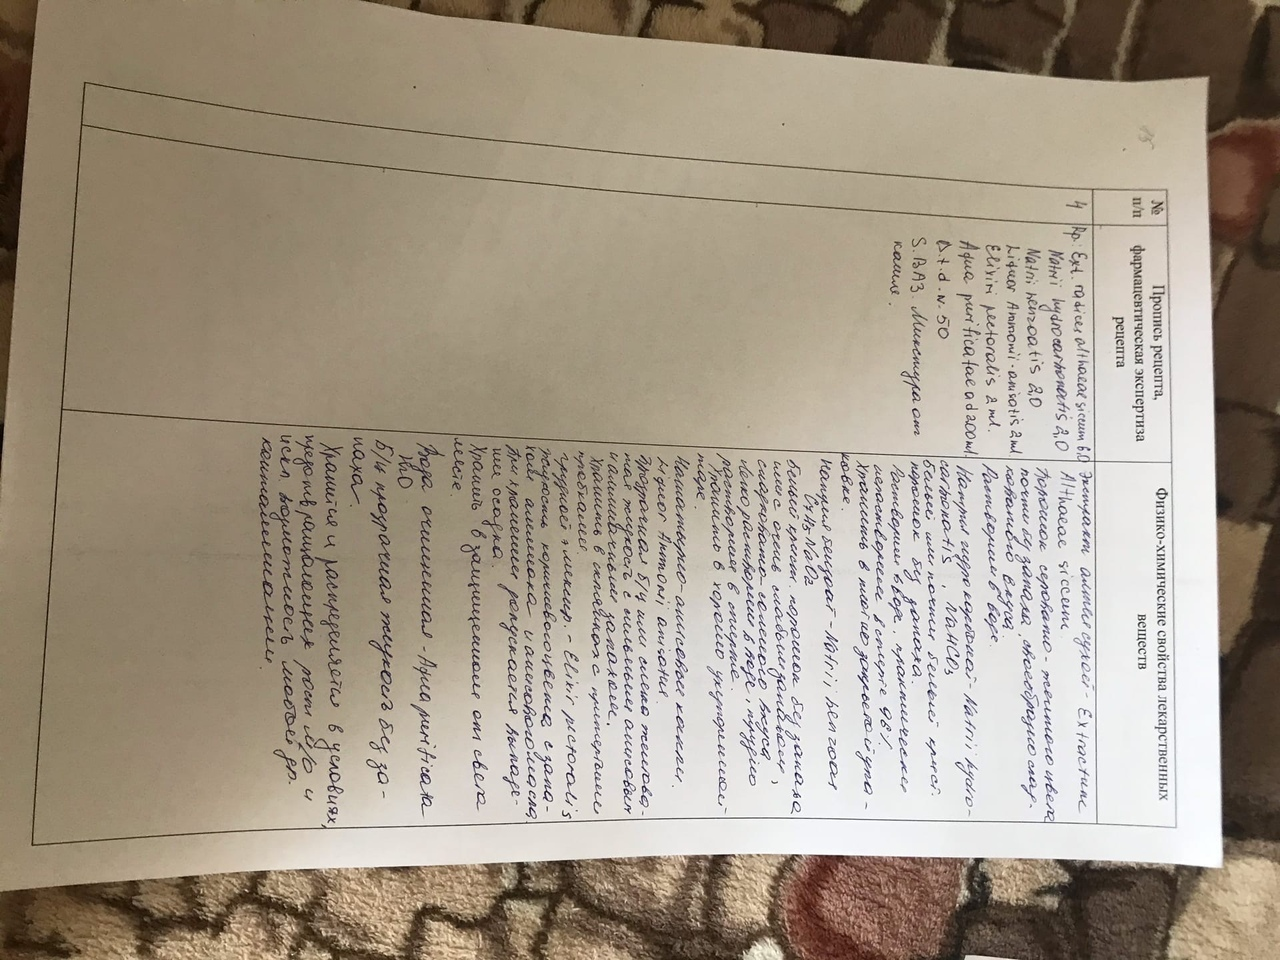 №
п/п
Пропись рецепта,
фармацевтическая экспертиза
рецепта
Физико-химические свойства лекарственных
веществ
4
Rp: Ext. radices althaeae siccum 6,0
Natrii hydrocarbonatis 2,0
Natrii benzoatis 2,0
Liquor Ammonii-anisatis 2 ml
Elixir pectoralis 2 ml.
Aqua purificatae ad 200 ml
D.t.d. N. 50
S. ВАЗ. Микстура от
кашле.
Экстракт алтея сухой - Extractum
Althaeae siccum.
Порошок серовато-желтого цвета
почти без запаха, своеобразно слиз-
коватого вкуса
Растворим в воде.
Натрия гидрокарбонат - Natrii hydro-
carbonatis, NaHCO3
Белый или почти белый крист.
порошок без запаха.
Растворим в воде, практически
нерастворим в спирте 96%
Хранить в плотно закрытой упа-
ковке.
Натрия бензоат - Natrii benzoas
C7H5NaO2
Белый крист. порошок без запаха
или с очень слабым запахом,
сладковато-соленого вкуса
Легко растворим в воде, трудно
растворим в спирте.
Хранить в хорошо укупоренной
таре.
Нашатырно-анисовые капли.
Liquor Ammonii anisatus
Прозрачная б/ц или слегка желтова-
тая жидкость с сильным анисовым
и аммиачным запахом.
Хранить в склянках с притертыми
пробками.
Грудной эликсир. - Elixir pectoralis
Жидкость коричневого цвета с запа-
хом аммиака и анисового масла
При хранении допускается выпаде-
ние осадка.
Хранить в защищенном от света
месте.
Вода очищенная - Aqua purificata
H2O
Б/ц прозрачная жидкость без за-
паха.
Хранится и распределяется в условиях,
предотвращающих рост м/о и
искл. возможность любой др.
контаминации.